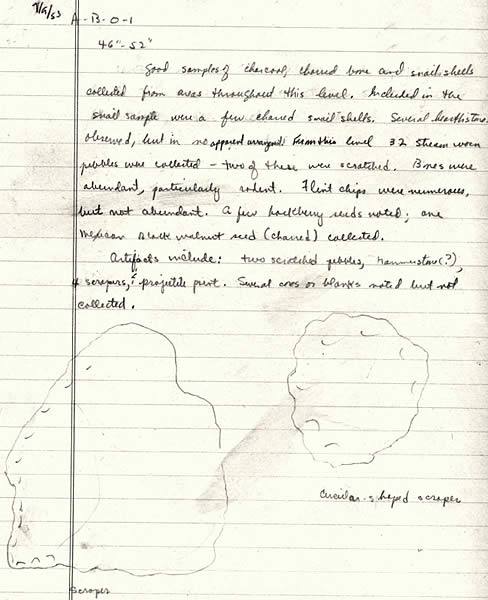 A-B-0-1
46"-52"
Good samples of charcoal, charred bone and snail shells
collected from areas throughout this level. Included in the
snail sample were a few charred snail shells. Several hearthstones
observed, but in no apparent arrangement. From this level 32 stream worn
pebbles were collected - two of these were scratched. Bones were
abundant, particularly rodent. Flint chips were numerous,
but not abundant. A few hackberry seeds noted; one
Mexican Black walnut seed (charred) collected.
Artifacts include: two scratched pebbles, hammerstone(?),
4 scrapers, projectile point. Several cores or blanks noted but not
collected.
Circular-shaped scraper
scraper